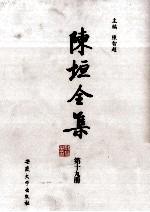 主编 陈智超
陳垣全集
第十九册
安徽大学出版社